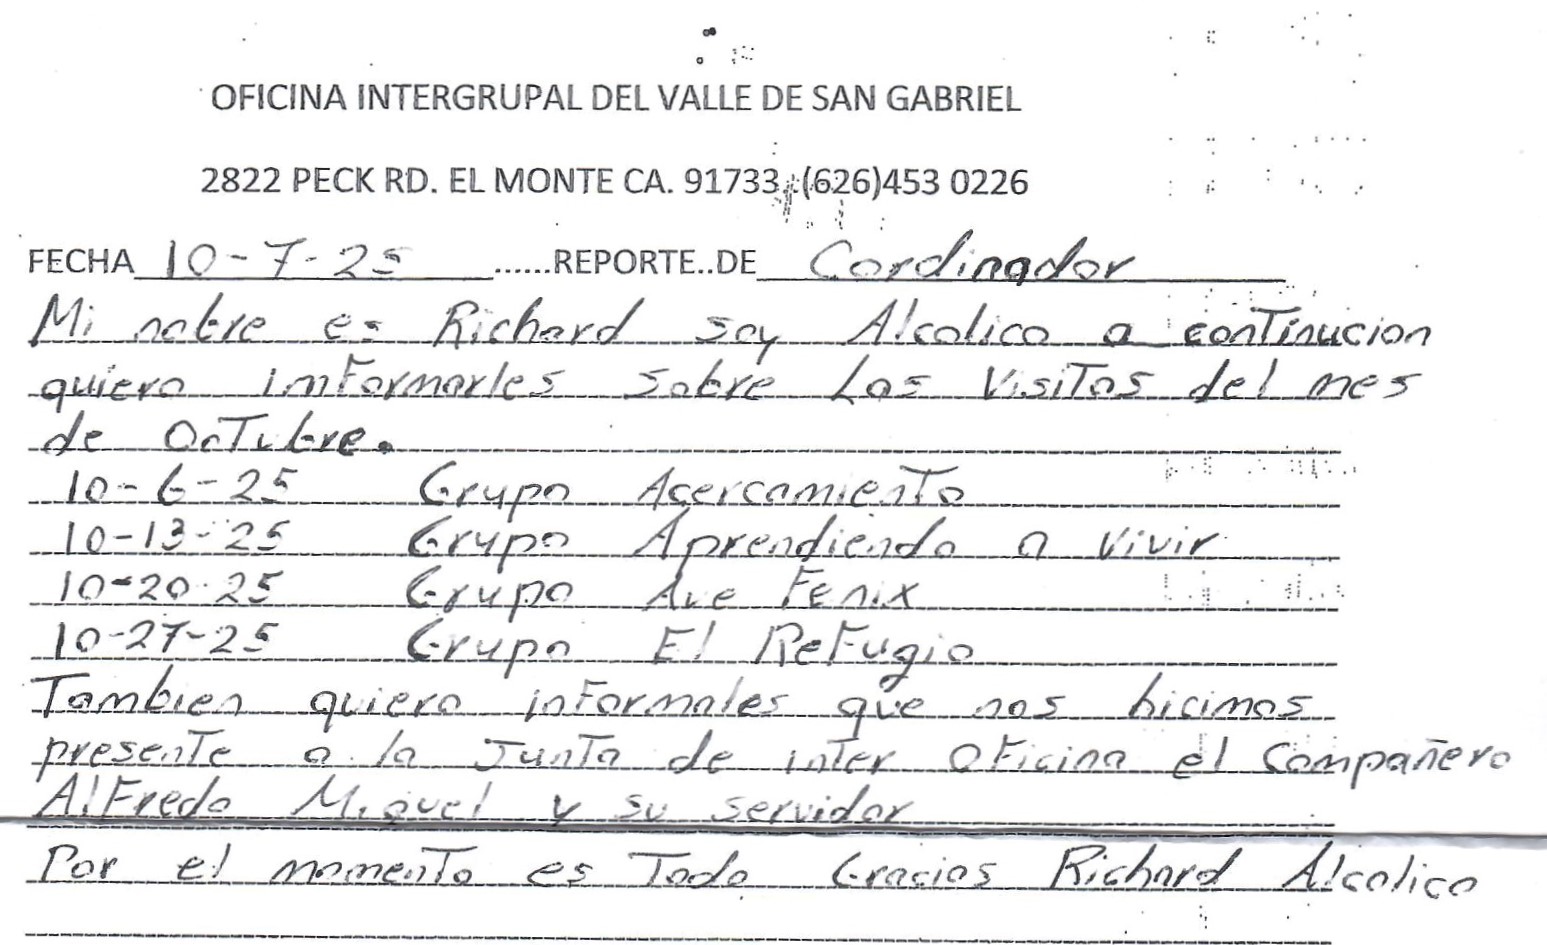 OFICINA INTERGRUPAL DEL VALLE DE SAN GABRIEL
2822 PECK RD. EL MONTE CA. 91733, (626)453 0226
FECHA 10-7-25 ......REPORTE..DE Cordinador
Mi nobre es Richard soy Alcolico a continucion
quiero imformarles sobre Las Visitas del mes
de Octubre.
10-6-25 Grupo Acercamiento
10-13-25 Grupo Aprendiendo a vivir
10-20-25 Grupo Ave Fenix
10-27-25 Grupo El Refugio
Tambien quiero informales que nos hicimos
presente a la Junta de inter oficina el Compañero
Alfredo Miguel y su servidor
Por el momento es Todo Gracias Richard Alcolico